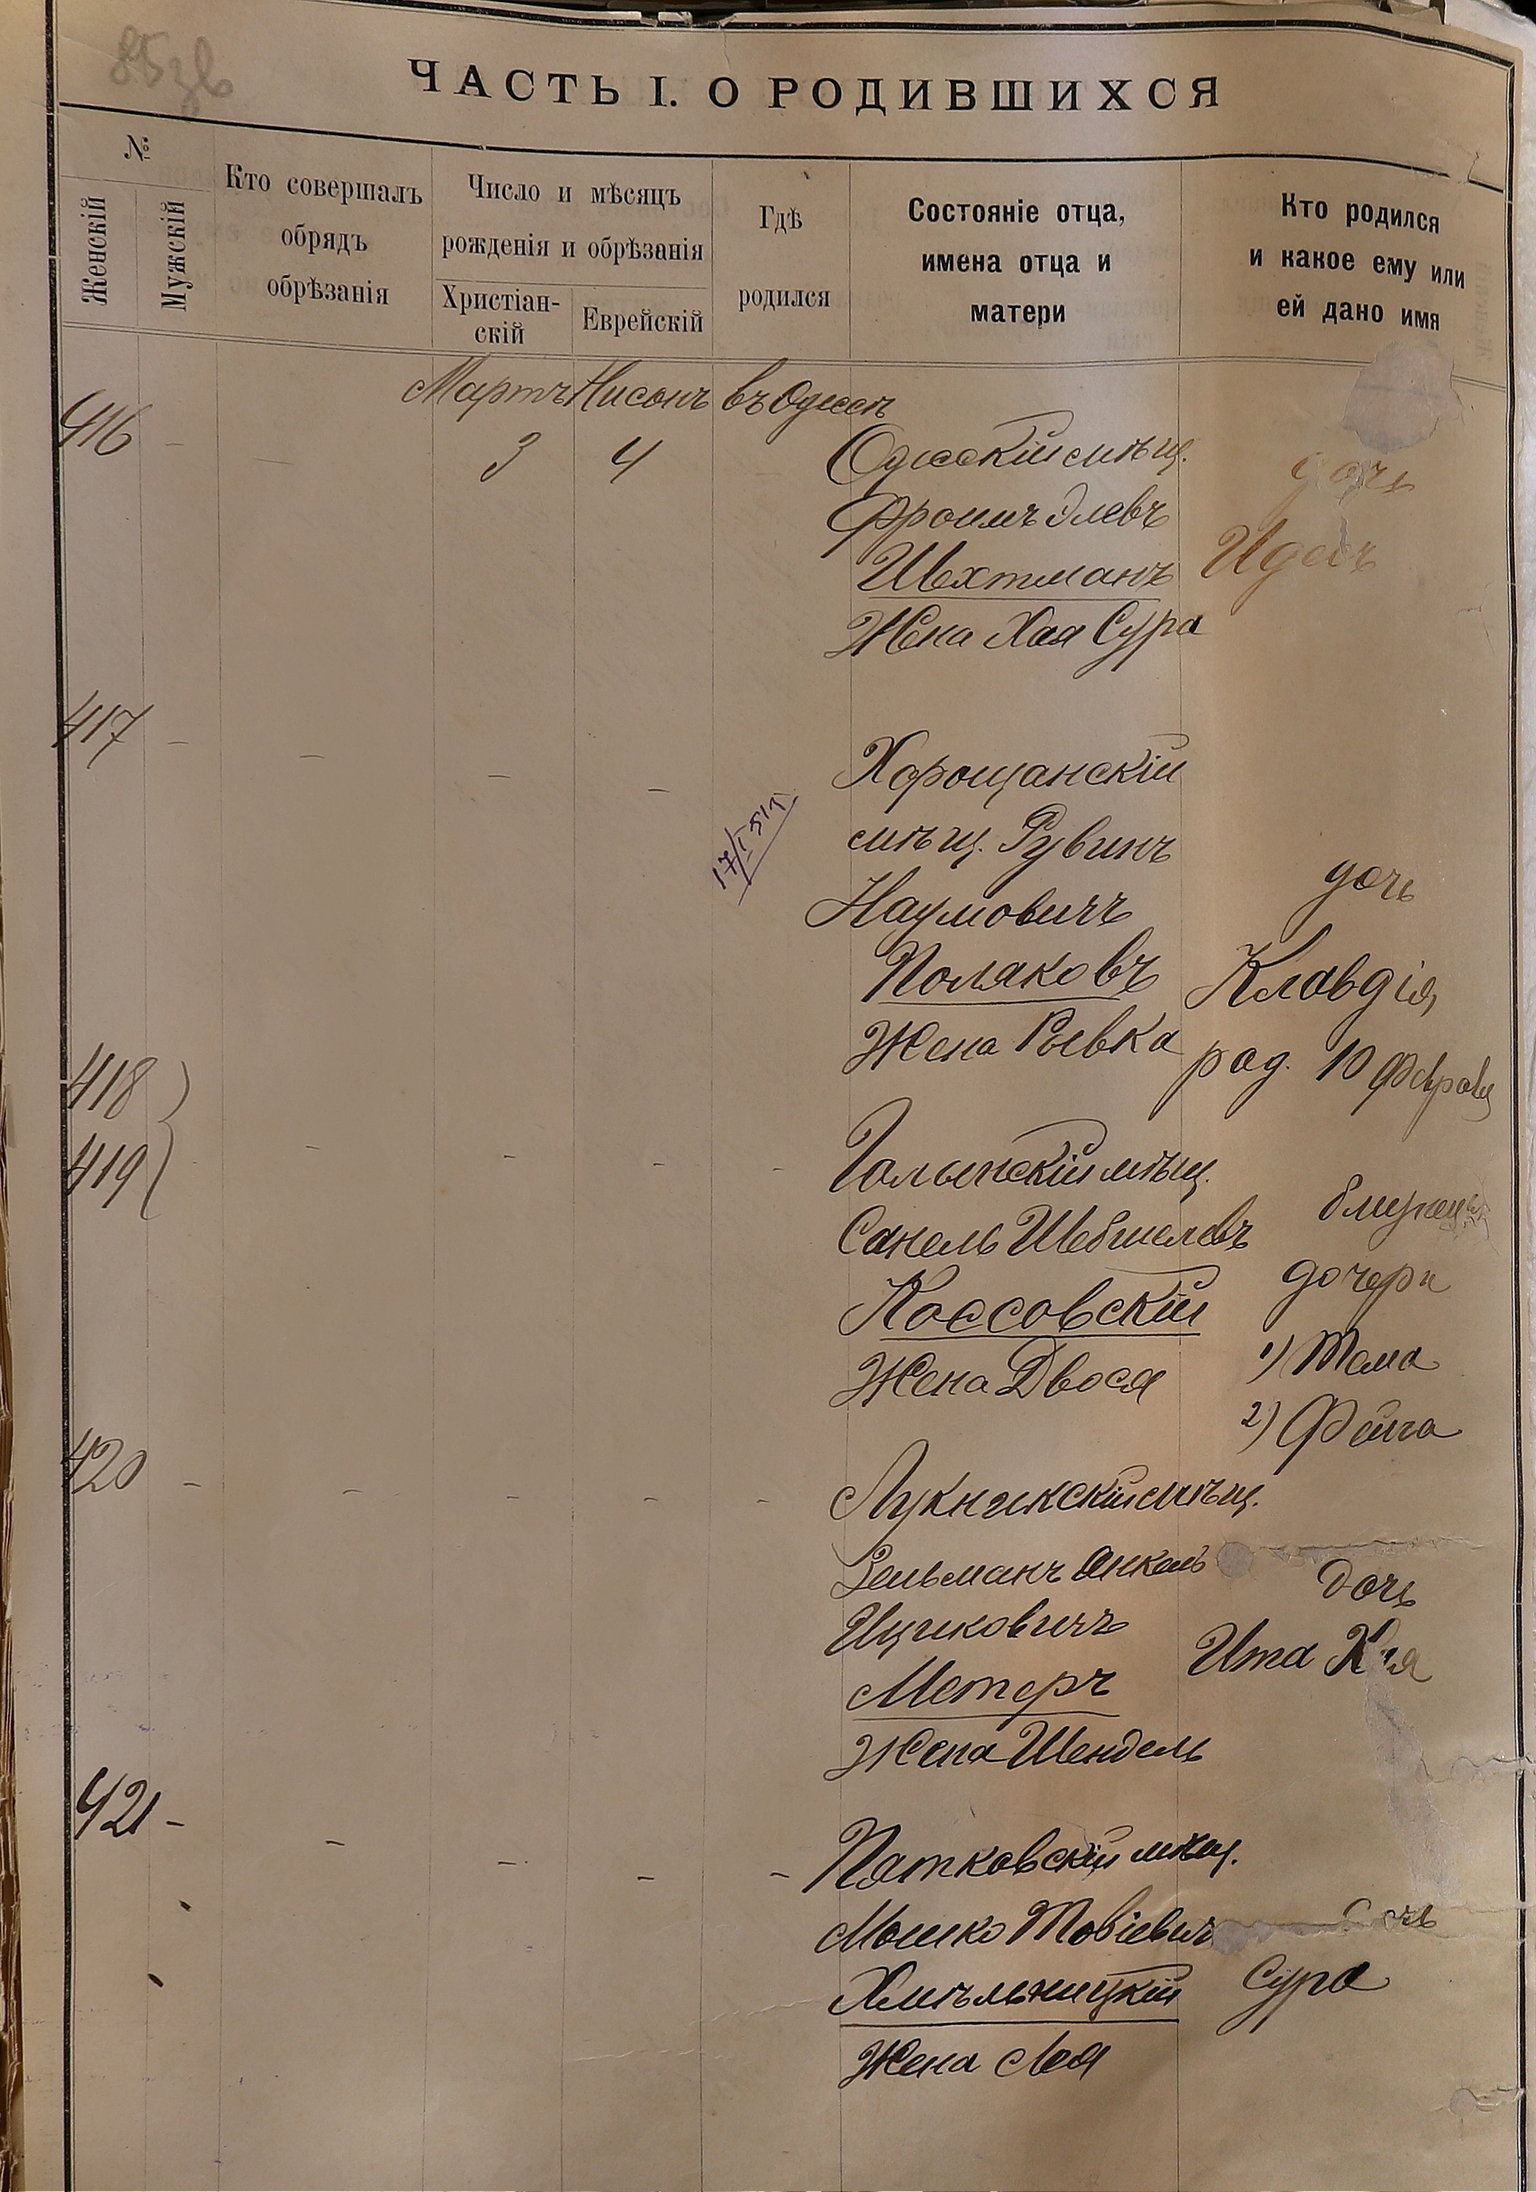 85 зв
ЧАСТЬ I. О РОДИВШИХСЯ
№
Женскій
Мужскій
Кто совершалъ
обрядъ
обрѣзанія
Число и мѣсяцъ
рожденія и обрѣзанія
Христіан-
скій
Еврейскій
Гдѣ
родился
Состояніе отца,
имена отца и
матери
Кто родился
и какое ему или
ей дано имя
Мартъ Нисонъ въ Одессѣ
416 - - 3 4
Одесскій мѣщ.
Фроимъ Элевъ
Шехтманъ
Жена Хая Сура
дочь
Идесъ
417 - - - -
17/I 51г
Хорощанскій
мѣщ. Рувинъ
Наумовичъ
Поляковъ
Жена Ривка
дочь
Клавдія,
род. 10 Феврал
418
419 - - - -
Голынскій мѣщ.
Санель Шебшелевъ
Коссовскій
Жена Двося
близнецы
дочери
1) Тема
2) Фейга
420 - - - - -
Лукникскій мѣщ.
Зельманъ Янкель
Ицковичъ
Метеръ
Жена Шендель
дочь
Ита
421 - - - - -
Пятковскій мѣщ.
Мошко Товіевич
Хмѣльницкій
Жена Лея
Сура